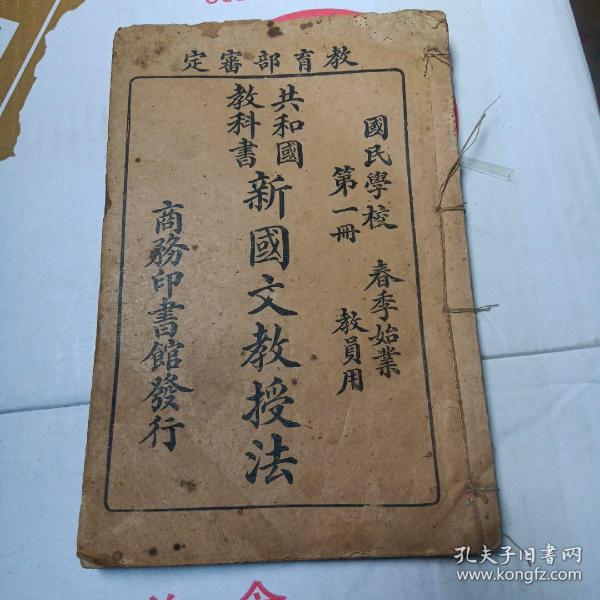 教育部審定
國民學校 春季始業
第一冊 教員用
共和國
教科書
新國文教授法
商務印書館發行
孔夫子旧书网
www.kongfz.com